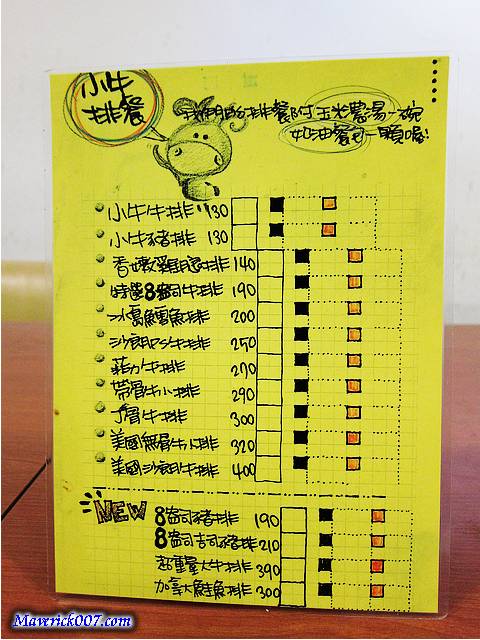 小牛
排餐
我們的排餐附玉米濃湯一碗
奶油餐包一顆喔!
小牛牛排 130
小牛豬排 130
香嫩雞腿排 140
特選8盎司牛排 190
冰島鱈魚排 200
沙朗牛排 250
菲力牛排 270
帶骨牛小排 290
丁骨牛排 300
美國無骨牛小排 320
美國沙朗牛排 400
NEW 8盎司豬排 190
8盎司吉司豬排 210
超重量大牛排 390
加拿大鮭魚排 300
Maverick007.com